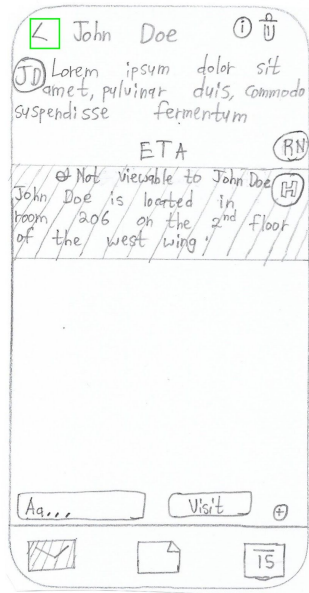 John Doe i
JD Lorem ipsum dolor sit
amet, pulvinar duis, commodo
suspendisse fermentum
ETA RN
Not viewable to John Doe H
John Doe is located in
room 206 on the 2nd floor
of the west wing.
Aa... Visit +
15